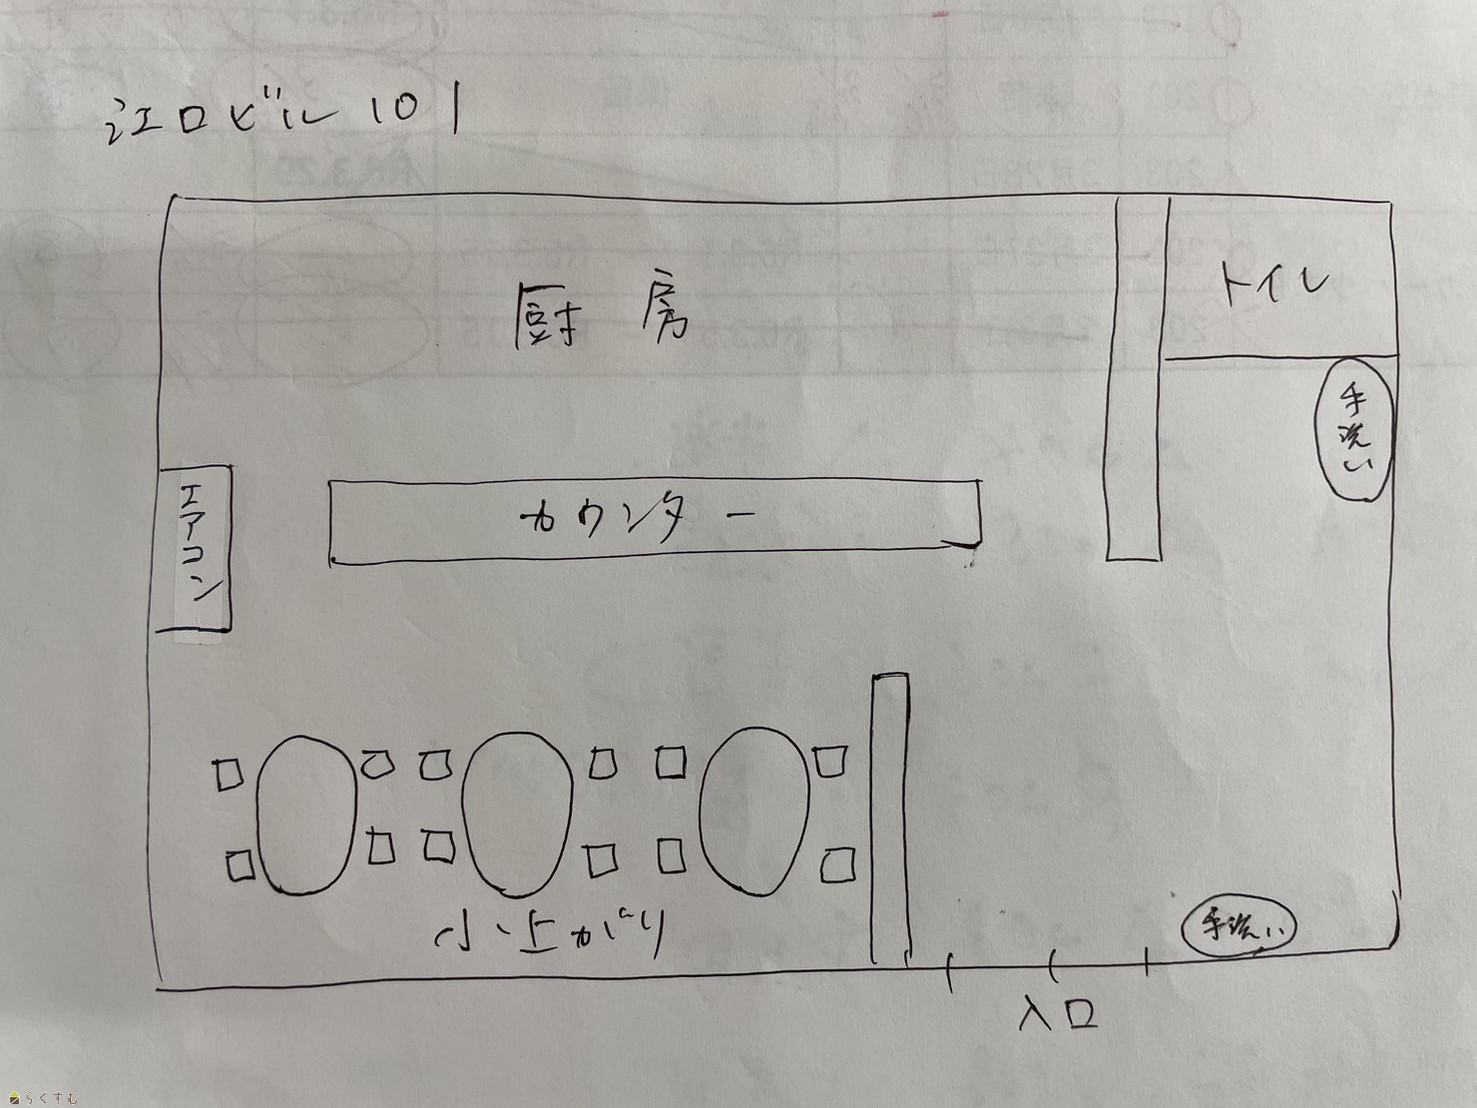 江口ビル 101
厨房
トイレ
手洗い
エアコン
カウンター
小上がり
手洗い
入口
らくすむ